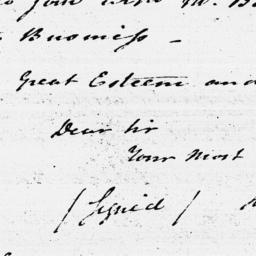 to join with Mr. B
Business –
Great Esteem and
Dear Sir
Your most
/ Signed /